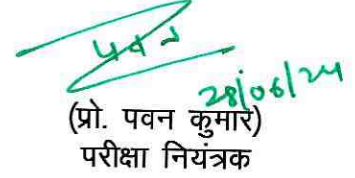 पवन
28/06/24
(प्रो. पवन कुमार)
परीक्षा नियंत्रक